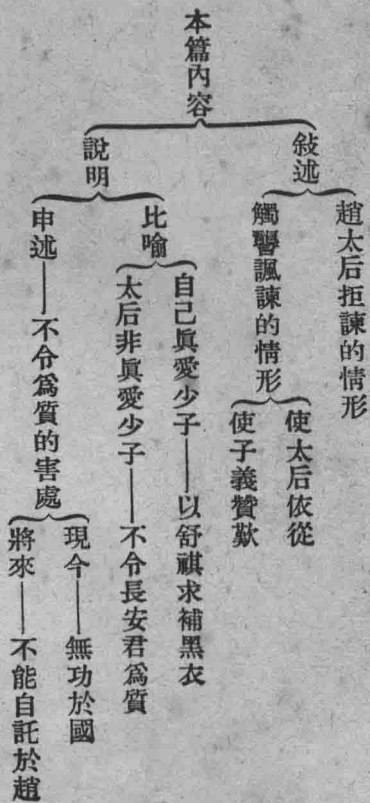 本篇內容
敍述
趙太后拒諫的情形
觸讋諷諫的情形
使太后依從
使子義贊歎
說明
比喻
自己眞愛少子——以舒祺求補黑衣
太后非眞愛少子——不令長安君爲質
申述——不令爲質的害處
現今——無功於國
將來——不能自託於趙